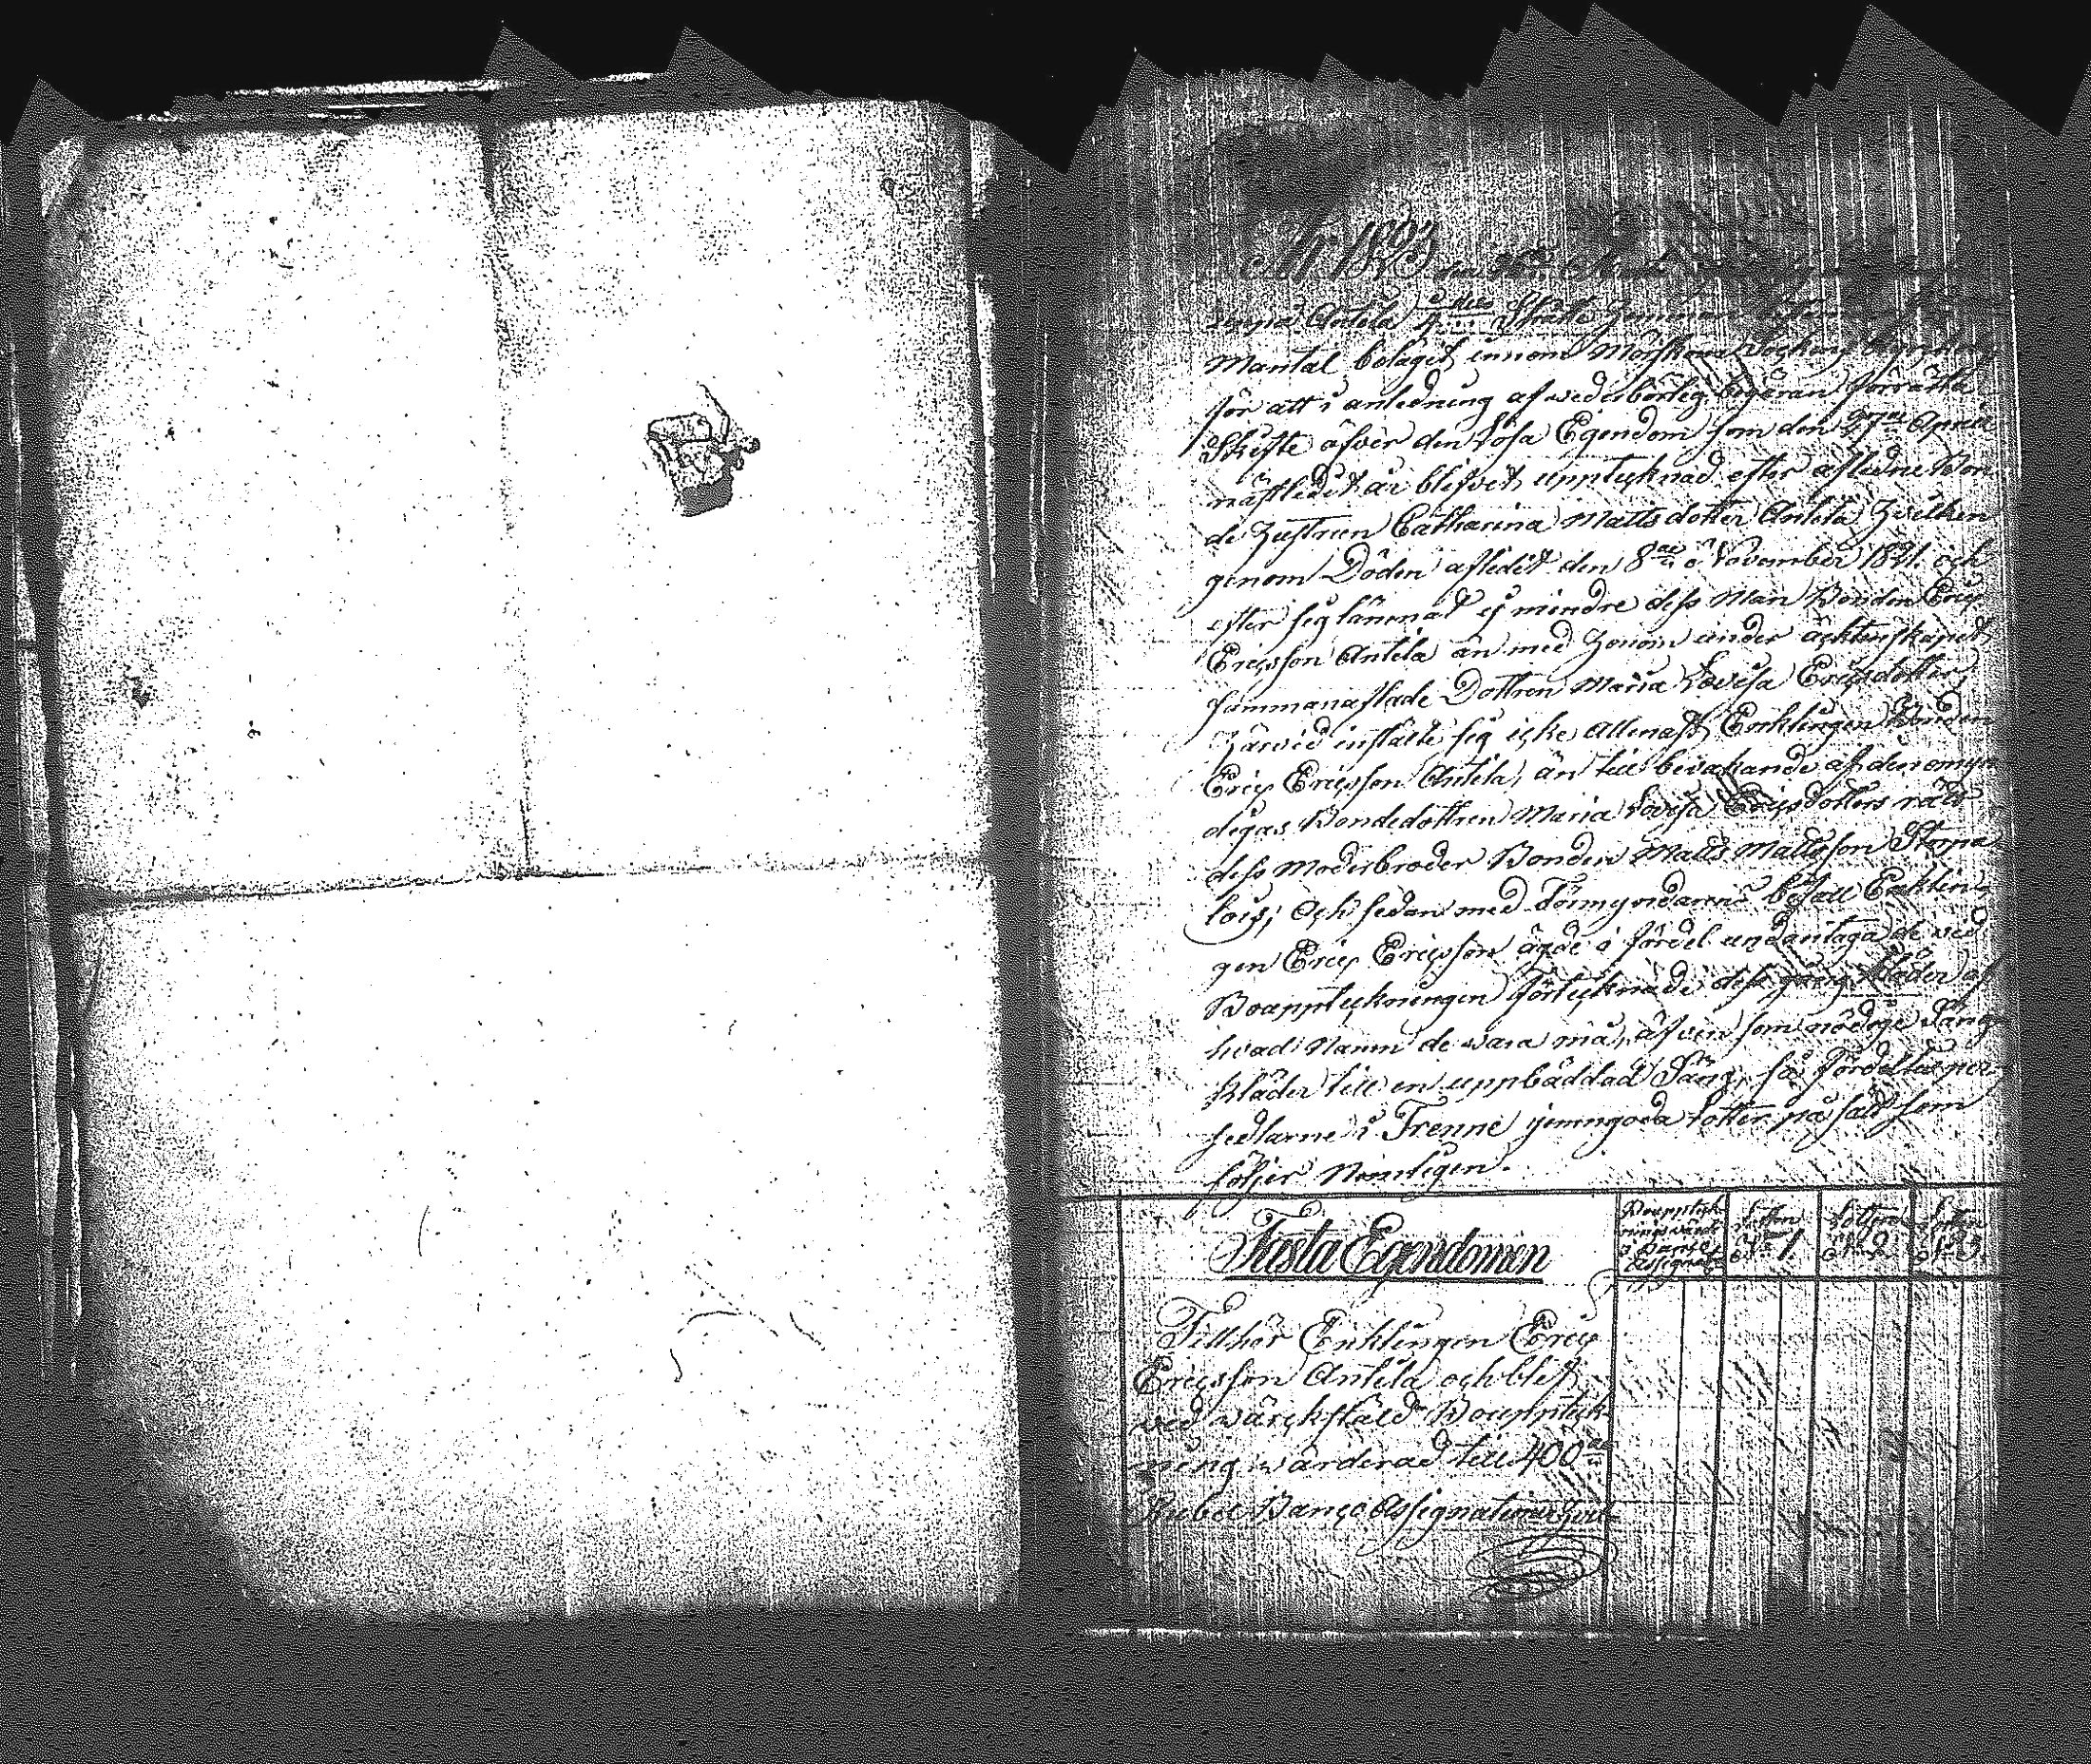 År 1823 den
uppå Antila Skatte Hemman
Mantal belaget innom Mörskoms Sockens
för att i anledning af wederbörlig begäran förrätta
Skifte öfver den lösa Egendom som den 27de April
nästledit år blifvit upptecknad efter afledne Bon
de Hustrun Catharina Mattsdotter Antila Hvilken
genom Döden afledit den 8de November 1821 och
efter sig lämnat ej mindre dess Man Bonden Eric
Ericsson Antila än med Honom under ächtenskapet
sammanaflade Dottren Maria Lovisa Ericsdotter;
Härvid instälte sig icke allenast Enklingen Bonden
Eric Ericsson Antila, än till bevakande af den omyn
digas Bondedottren Maria Lovisa Ericsdotters rätt
dess Moderbroder Bonden Matts Mattsson
och sedan med Förmyndarens befall Enklin
gen Eric Ericsson ägde i fördel undantaga de vid
Bouppteckningen förtecknade dess gång Kläder af
hvad Namn de vara må, äfven som nödige Säng
kläder till en uppbäddad Säng, så fördeltes per
sedlarne i Trenne jemngoda lotter på sätt som
följer Nemligen.
Fasta Egendomen
Boupptek
nings värde
i Banco
Assignat.
Lotten
No 1.
Lotten
No 2.
Lotten
No 3.
Tillhör Enklingen Eric
Ericsson Antila och blef
ved värckstäld Bouppteck
ning värderad till 400de
Rubel Banco Assignationer Hvil